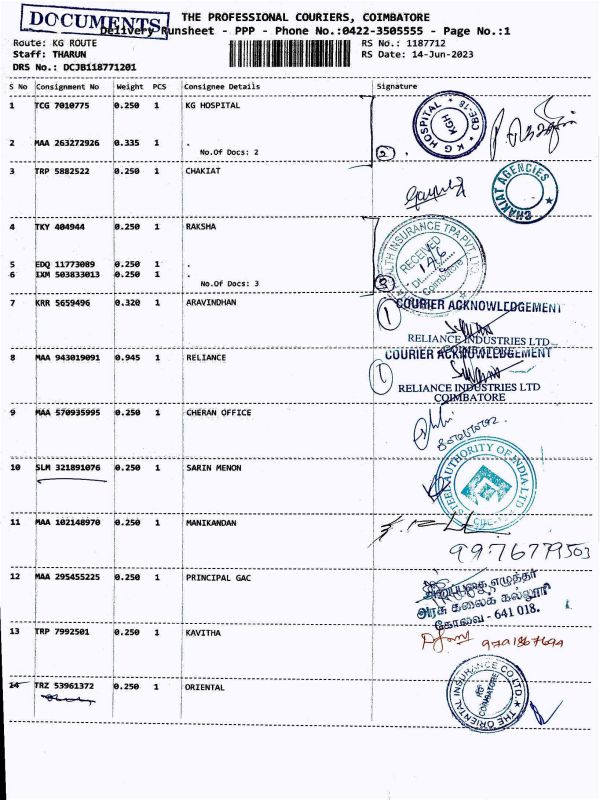 DOCUMENTS
THE PROFESSIONAL COURIERS, COIMBATORE
Delivery Runsheet - PPP - Phone No.:0422-3505555 - Page No.:1
Route: KG ROUTE
RS No.: 1187712
Staff: THARUN
RS Date: 14-Jun-2023
DRS No.: DCJB118771201
S No Consignment No Weight PCS Consignee Details Signature
1 TCG 7010775 0.250 1 KG HOSPITAL
KG HOSPITAL * CBE-18 *
KGH
2 MAA 263272926 0.335 1 .
No.Of Docs: 2
2
3 TRP 5882522 0.250 1 CHAKIAT
CHAKIAT AGENCIES
4 TKY 404944 0.250 1 RAKSHA
HEALTH INSURANCE TPA PVT. LTD.
RECEIVED
14/6
Coimbatore
5 EDQ 11773089 0.250 1 .
6 IXM 503833013 0.250 1 .
No.Of Docs: 3
3
7 KRR 5659496 0.320 1 ARAVINDHAN
COURIER ACKNOWLEDGEMENT
1
RELIANCE INDUSTRIES LTD
COIMBATORE
8 MAA 943019091 0.945 1 RELIANCE
COURIER ACKNOWLEDGEMENT
1
RELIANCE INDUSTRIES LTD
COIMBATORE
9 MAA 570935995 0.250 1 CHERAN OFFICE
10 SLM 321891076 0.250 1 SARIN MENON
STEEL AUTHORITY OF INDIA LTD
11 MAA 102148970 0.250 1 MANIKANDAN
9976779503
12 MAA 295455225 0.250 1 PRINCIPAL GAC
எழுத்தர்
அரசு கலைக் கல்லூரி
கோவை - 641 018.
13 TRP 7992501 0.250 1 KAVITHA
9791867699
14 TRZ 53961372 0.250 1 ORIENTAL
THE ORIENTAL INSURANCE CO LTD.
COIMBATORE